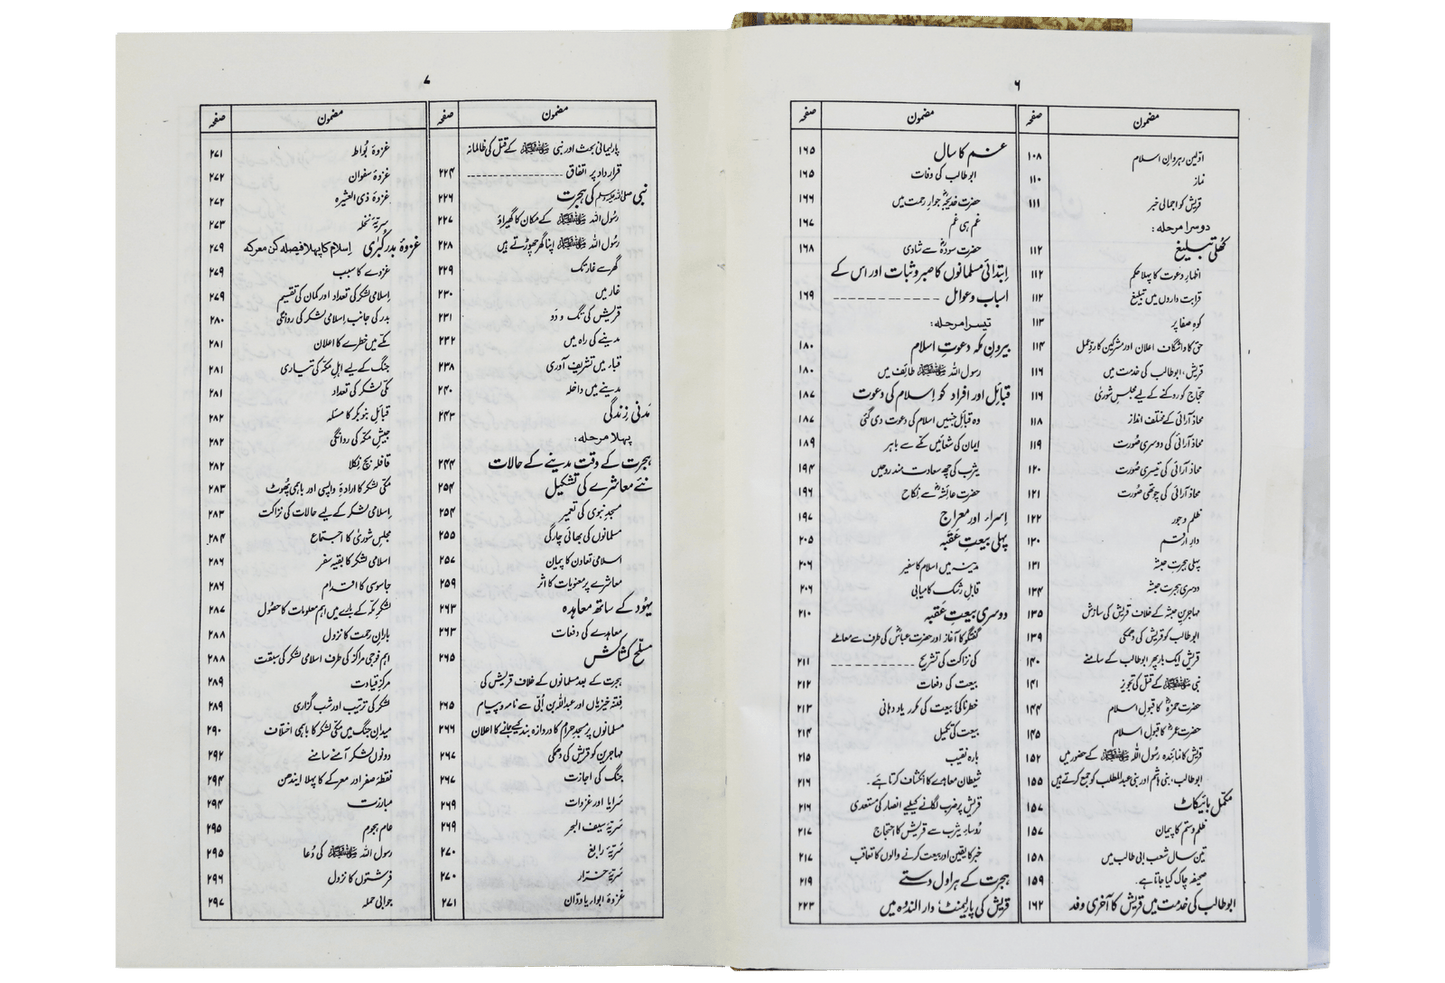 ۶
مضمون صفحہ
اوّلین رہروانِ اسلام ۱۰۸
نماز ۱۱۰
قریش کو اجمالی خبر ۱۱۱
دوسرا مرحلہ:
کھلی تبلیغ ۱۱۲
اظہارِ دعوت کا پہلا حکم ۱۱۲
قرابت داروں میں تبلیغ ۱۱۲
کوہِ صفا پر ۱۱۳
حق کا واشگاف اعلان اور مشرکین کا ردِّعمل ۱۱۴
قریش، ابوطالب کی خدمت میں ۱۱۶
حجاج کو روکنے کے لیے مجلسِ شوریٰ ۱۱۶
محاذ آرائی کے مختلف انداز ۱۱۸
محاذ آرائی کی دوسری صُورت ۱۱۹
محاذ آرائی کی تیسری صُورت ۱۲۰
محاذ آرائی کی چوتھی صُورت ۱۲۱
ظلم و جور ۱۲۲
دارِ ارقم ۱۳۰
پہلی ہجرتِ حبشہ ۱۳۱
دوسری ہجرتِ حبشہ ۱۳۴
مہاجرینِ حبشہ کے خلاف قریش کی سازش ۱۳۵
ابوطالب کو قریش کی دھمکی ۱۳۹
قریش ایک بار پھر ابوطالب کے سامنے ۱۴۰
نبی ﷺ کے قتل کی تجویز ۱۴۱
حضرت حمزہؓ کا قبولِ اسلام ۱۴۴
حضرت عمرؓ کا قبولِ اسلام ۱۴۵
قریش کا نمائندہ رسُول اللہ ﷺ کے حضور میں ۱۵۲
ابوطالب، بنی ہاشم اور بنی عبدالمطلب کو جمع کرتے ہیں ۱۵۵
مکمل بائیکاٹ ۱۵۷
ظلم و ستم کا پیمان ۱۵۷
تین سال شعبِ ابی طالب میں ۱۵۸
صحیفہ چاک کیا جاتا ہے ۔ ۱۵۹
ابوطالب کی خدمت میں قریش کا آخری وفد ۱۶۲
مضمون صفحہ
غم کا سال ۱۶۵
ابوطالب کی وفات ۱۶۵
حضرت خدیجہؓ جوارِ رحمت میں ۱۶۶
غم ہی غم ۱۶۷
حضرت سودہؓ سے شادی ۱۶۸
اِبتدائی مسلمانوں کا صبر و ثبات اور اس کے
اسباب و عوامل ۱۶۹
تیسرا مرحلہ:
بیرونِ مکہ دعوتِ اسلام ۱۸۰
رسول اللہ ﷺ طائف میں ۱۸۰
قبائل اور افراد کو اِسلام کی دعوت ۱۸۷
وہ قبائل جنہیں اسلام کی دعوت دی گئی ۱۸۷
ایمان کی شعائیں مکّے سے باہر ۱۸۹
یثرب کی چھ سعادت مند روحیں ۱۹۴
حضرت عائشہؓ سے نکاح ۱۹۶
اِسراء اور معراج ۱۹۷
پہلی بیعتِ عَقَبہ ۲۰۵
مدینہ میں اسلام کا سفیر ۲۰۶
قابلِ رشک کامیابی ۲۰۶
دوسری بیعتِ عَقَبہ ۲۱۰
گفتگو کا آغاز اور حضرت عباسؓ کی طرف سے معاملے
کی نزاکت کی تشریح ۲۱۱
بیعت کی دفعات ۲۱۲
خطرناکیٔ بیعت کی مکرر یاد دہانی ۲۱۳
بیعت کی تکمیل ۲۱۴
بارہ نقیب ۲۱۵
شیطان معاہدے کا انکشاف کرتا ہے ۔ ۲۱۶
قریش پر ضرب لگانے کیلیے انصار کی مستعدی ۲۱۶
رُوساءِ یثرب سے قریش کا احتجاج ۲۱۷
خبر کا یقین اور بیعت کرنے والوں کا تعاقب ۲۱۷
ہجرت کے ہراول دستے ۲۱۹
قریش کی پارلیمنٹ، دار الندوہ میں ۲۲۳
۷
مضمون صفحہ
پارلیمانی بحث اور نبی ﷺ کے قتل کی ظالمانہ
قرارداد پر اتفاق ۲۲۴
نبی صلی اللہ علیہ وسلم کی ہجرت ۲۲۶
رسُول اللہ ﷺ کے مکان کا گھیراؤ ۲۲۷
رسُول اللہ ﷺ اپنا گھر چھوڑتے ہیں ۲۲۸
گھر سے غار تک ۲۲۹
غار میں ۲۳۰
قریش کی تگ و دَو ۲۳۱
مدینے کی راہ میں ۲۳۲
قباء میں تشریف آوری ۲۳۸
مدینے میں داخلہ ۲۴۰
مَدنی زِندگی ۲۴۳
پہلا مرحلہ:
ہجرت کے وقت مدینے کے حالات ۲۴۴
نئے معاشرے کی تشکیل ۲۵۴
مسجدِ نبوی کی تعمیر ۲۵۴
مسلمانوں کی بھائی چارگی ۲۵۵
اسلامی تعاون کا پیمان ۲۵۷
معاشرے پر معنویات کا اثر ۲۵۹
یہود کے ساتھ معاہدہ ۲۶۳
معاہدے کی دفعات ۲۶۳
مسلّح کشاکش ۲۶۵
ہجرت کے بعد مسلمانوں کے خلاف قریش کی
فتنہ خیزیاں اور عبداللہ بن اُبَیّ سے نامہ و پیام ۲۶۵
مسلمانوں پر مسجدِ حرام کا دروازہ بند کیے جانے کا اعلان ۲۶۶
مہاجرین کو قریش کی دھمکی ۲۶۷
جنگ کی اجازت ۲۶۷
سَرایا اور غزوات ۲۶۹
سَریّۂ سیف البحر ۲۶۹
سَریّۂ رابغ ۲۷۰
سَریّۂ خرّار ۲۷۰
غزوۂ ابواء یا ودّان ۲۷۱
مضمون صفحہ
غزوۂ بُواط ۲۷۱
غزوۂ سفوان ۲۷۲
غزوۂ ذی العشیرہ ۲۷۲
سَریّۂ نخلہ ۲۷۳
غزوۂ بدرِ کُبریٰ اِسلام کا پہلا فیصلہ کن معرکہ ۲۷۹
غزوے کا سبب ۲۷۹
اِسلامی لشکر کی تعداد اور کمان کی تقسیم ۲۷۹
بدر کی جانب اِسلامی لشکر کی روانگی ۲۸۰
مکّے میں خطرے کا اعلان ۲۸۱
جنگ کے لیے اہلِ مکہ کی تیاری ۲۸۱
مکّی لشکر کی تعداد ۲۸۱
قبائلِ بنو بکر کا مسئلہ ۲۸۲
جیشِ مکہ کی روانگی ۲۸۲
قافلہ بچ نکلا ۲۸۲
مکّی لشکر کا ارادۂ واپسی اور باہمی پھُوٹ ۲۸۳
اِسلامی لشکر کے لیے حالات کی نزاکت ۲۸۳
مجلسِ شوریٰ کا اجتماع ۲۸۴
اسلامی لشکر کا بقیہ سفر ۲۸۶
جاسوسی کا اقدام ۲۸۶
لشکرِ مکہ کے بارے میں اہم معلومات کا حصُول ۲۸۷
بارانِ رحمت کا نزول ۲۸۸
اہم فوجی مراکز کی طرف اسلامی لشکر کی سبقت ۲۸۸
مرکزِ قیادت ۲۸۹
لشکر کی ترتیب اور شب گزاری ۲۸۹
میدانِ جنگ میں مکّی لشکر کا باہمی اختلاف ۲۹۰
دونوں لشکر آمنے سامنے ۲۹۲
نقطۂ صفر اور معرکے کا پہلا ایندھن ۲۹۴
مبارزت ۲۹۴
عام ہجوم ۲۹۵
رسول اللہ ﷺ کی دُعا ۲۹۵
فرشتوں کا نزول ۲۹۶
جوابی حملہ ۲۹۷